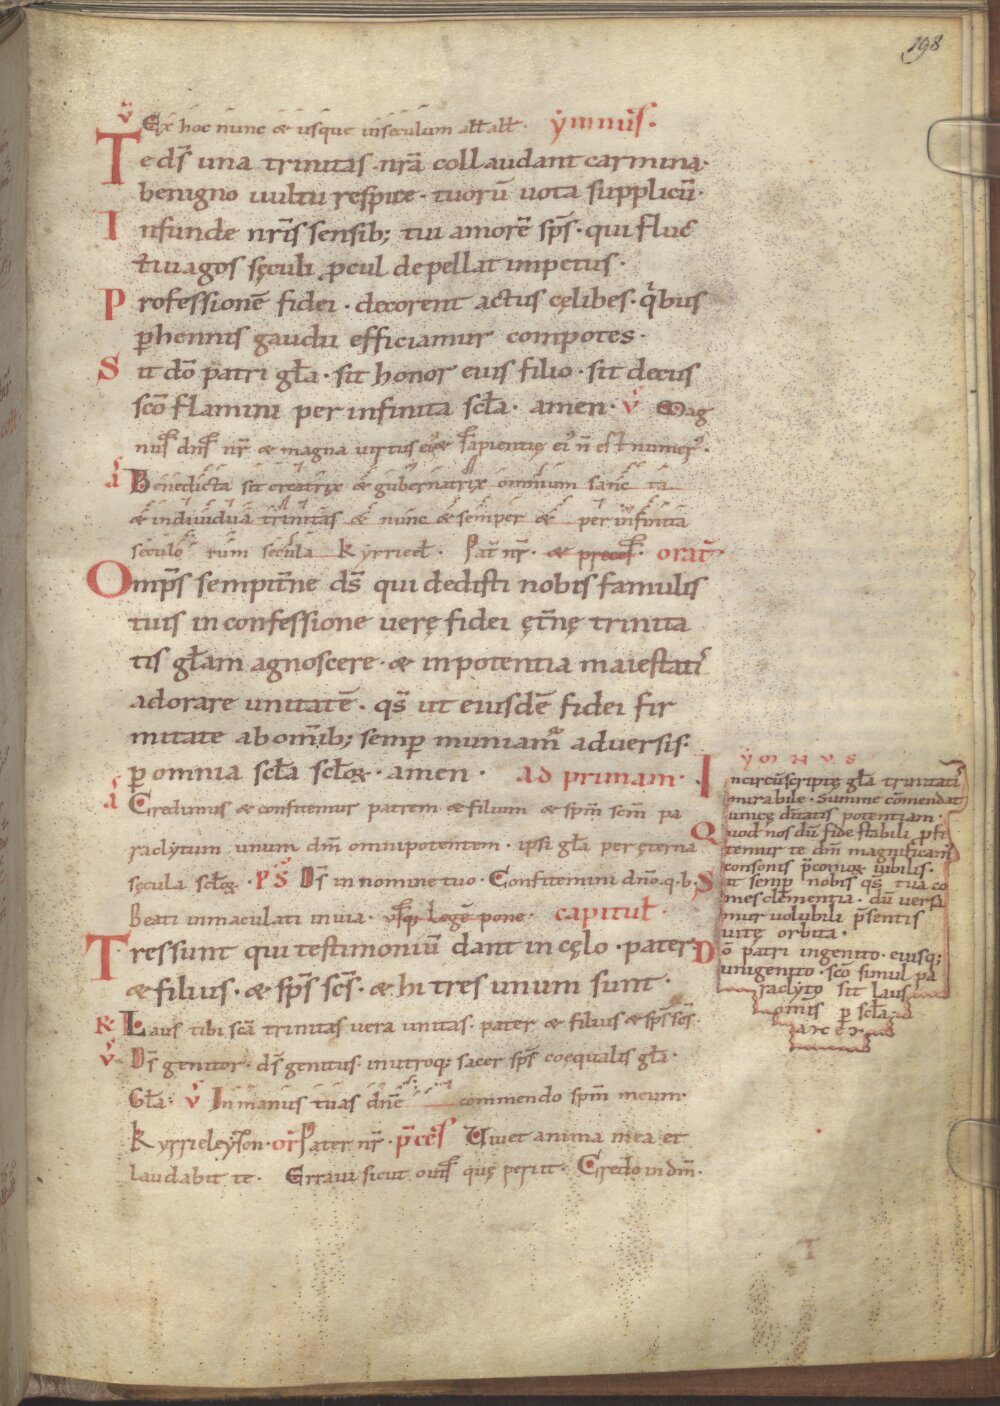 198
v̄ Ex hoc nunc & usque inseculum all̄ all̄. ymnus̄.
Te dr̄s una trinitas nr̄a collaudant carmina·
benigno uultu respice · tuorū uota supplicū·
Infunde nr̄is sensib; tui amorē sp̄s · qui fluc
t̄iuagos sęculi ꝓcul depellat impetus·
Professionē fidei · decorent actus cęlibes · qͥbus
ꝑhennis gaudii efficiamur compotes·
Sit dō patri gl̄a · sit honor eius filio · sit decus
scō flamini per infinita scl̄a · amen · v̄ Mag
nus dns nr̄ & magna uirtus ei᷒ & sapientię ei᷒ n̄ est numer᷒·
ā Benedicta sit creatrix & gubernatrix omnium sanc ta
& indiuidua trinitas & nunc & semper & per infinita
seculo rum secula Kyrriel̄. Pat̄ nr̄· & preces· orat̄·
Omp̄s sempit̄ne ds̄ qui dedisti nobis famulis
tuis in confessione uerę fidei ęt̄nę trinita
tis gl̄am agnoscere · & in potentia maiestati᷒
adorare unitatē · qs̄ ut eiusdē fidei fir
mitate ab om̄ib; semꝑ muniam᷒ aduersis·
ꝑ omnia scl̄a scl̄oꝝ · amen · ad primam·
ā Credimus & confitemur patrem & filium & spm̄ scm̄ pa
raclytum unum dm̄ omnipotentem · ipsi gl̄a per ęterna
sęcula scl̄oꝝ · PS̄ Ds̄ in nomine tuo · Confitemini dn̄o · q · b·
Beati inmaculati in uia · usqꝫ legē pone · capitul̄·
Tres sunt qui testimoniū dant in cęlo · pater·
& filius · & sp̄s sc̄s · & hi tres unum sunt·
R̄ Laus tibi scā trinitas uera unitas · pater & filius & sp̄s sc̄s·
v̄ Ds̄ genitor · ds̄ genitus · in utroqꝫ sacer sp̄s coequalis gl̄a·
Gl̄a: v̄ In manus tuas dn̄e commendo spm̄ meum·
Kyrrieleyson · or̄ Pater nr̄ · p̄cēs Uiuet anima mea et
laudabit te · Erraui sicut ouis quę periit · Credo in dm̄·
YMNVS
Incircūscriptę gl̄a trinitati᷒
mirabile · Summe comendat
unicę dītatis potentiam·
Quod nos dū fide stabili ꝓfi
temur te dm̄ magnificam᷒
consonis p̄conioꝝ iubilis·
Sit semꝑ nobis qs̄ tua co
mes clementia · dū uersa
mur uolubili p̄sentis
uitę orbita·
Dō patri ingenito · eiusqꝫ
unigenito · scō simul pa
raclyto sit laus
om̄is ꝑ scl̄a
arce r
T